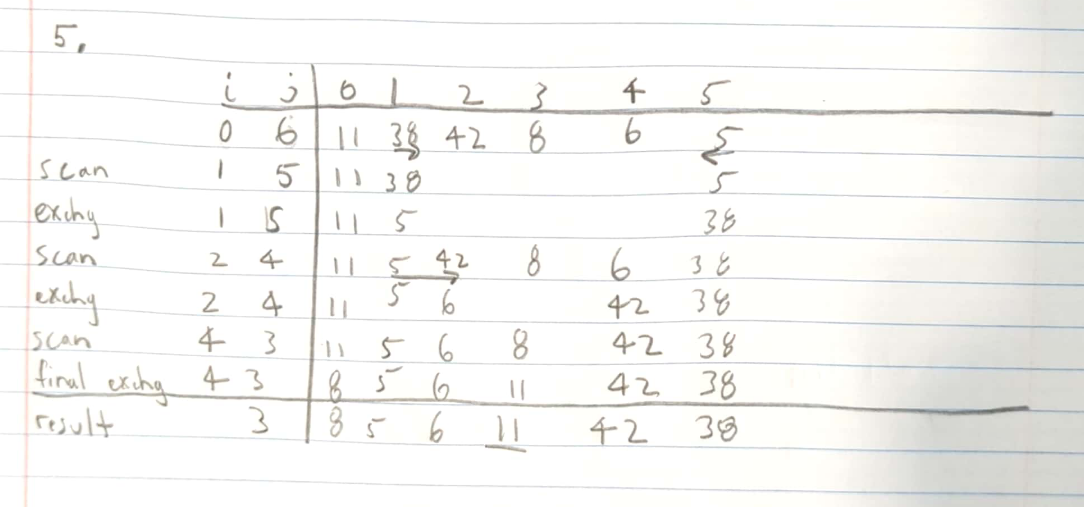 5.
i j 0 1 2 3 4 5
0 6 11 38 42 8 6 5
scan 1 5 11 38 5
exchg 1 5 11 5 38
scan 2 4 11 5 42 8 6 38
exchg 2 4 11 5 6 42 38
scan 4 3 11 5 6 8 42 38
final exchg 4 3 8 5 6 11 42 38
result 3 8 5 6 11 42 38